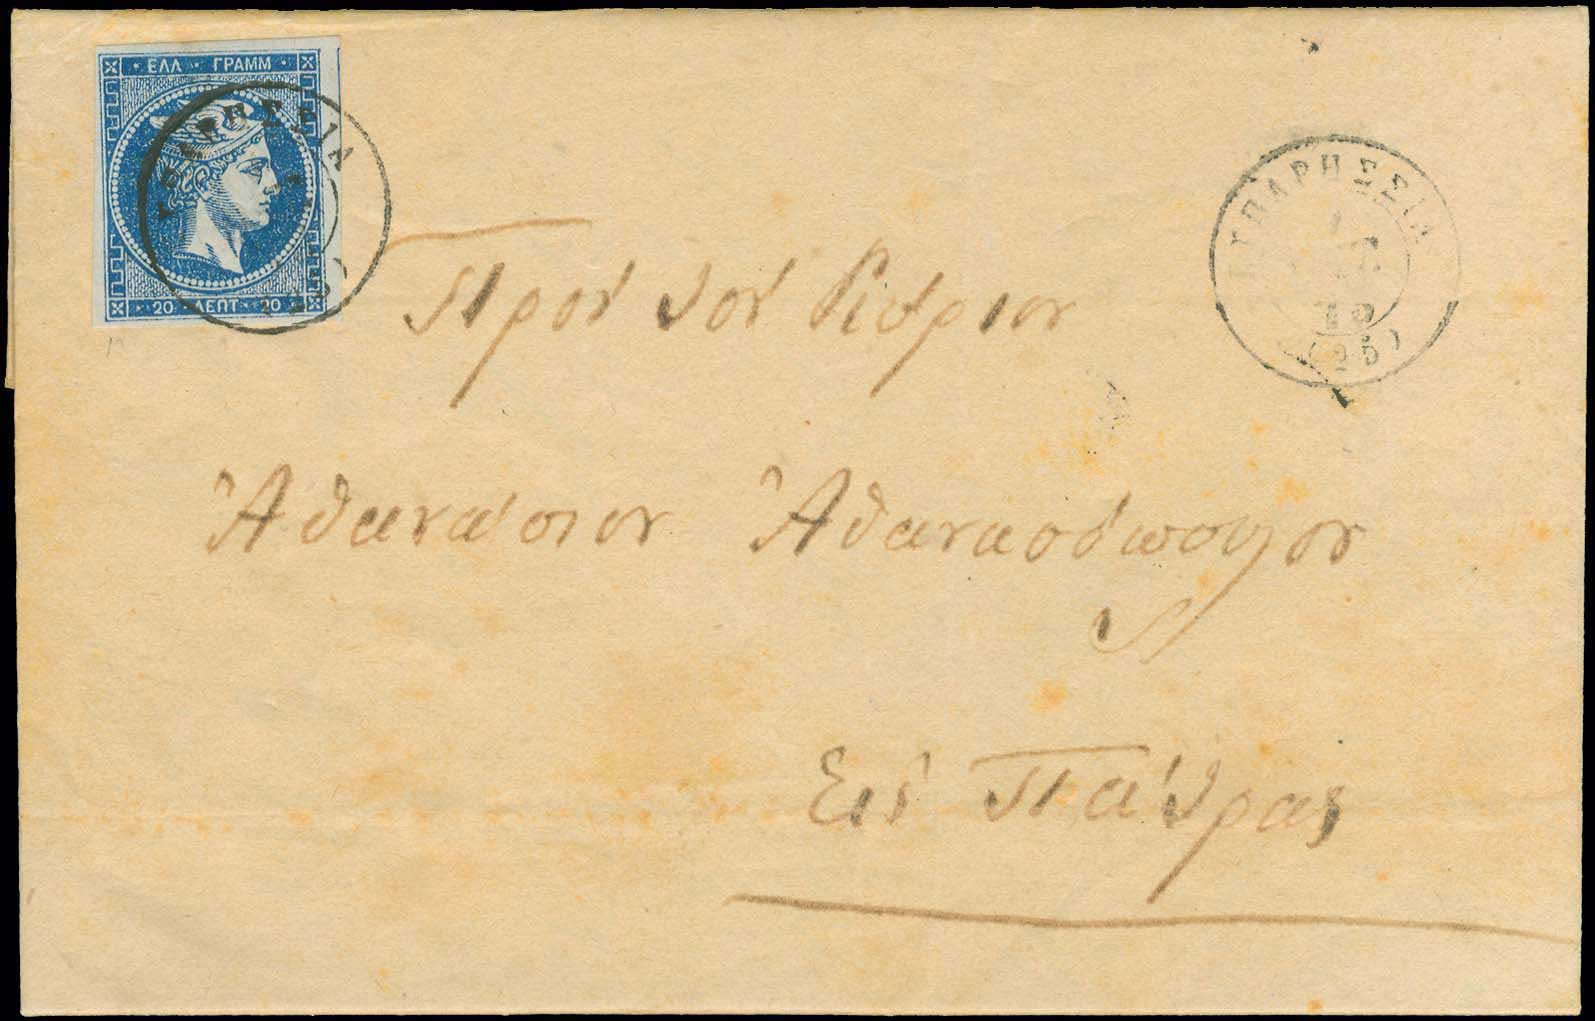 ΕΛΛ ΓΡΑΜΜ
20 ΛΕΠΤ 20
ΚΥΠΑΡΗΣΣΙΑ
ΚΥΠΑΡΗΣΣΙΑ
(25)
Πρὸς τὸν Κύριον
Ἀθανάσιον Ἀθανασόπωουλον
Εἰς Πάτρας